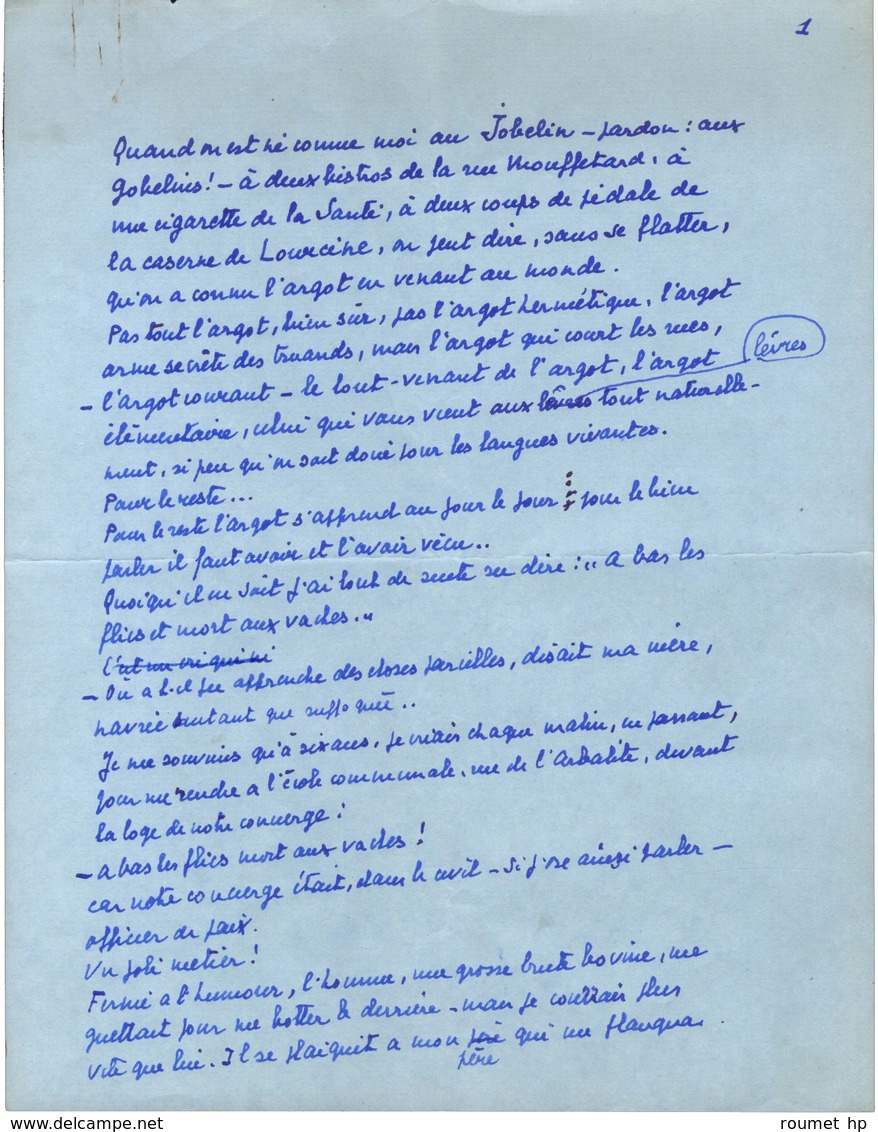 1
Quand on est né comme moi au Jobelin – pardon : aux
Gobelins ! – à deux bistros de la rue Mouffetard, à
une cigarette de la Santé, à deux coups de pédale de
la caserne de Lourcine, on peut dire, sans se flatter,
qu'on a connu l'argot en venant au monde.
Pas tout l'argot, bien sûr, pas l'argot hermétique, l'argot
arme secrète des truands, mais l'argot qui court les rues,
– l'argot courant – le tout-venant de l'argot, l'argot
lèvres
élémentaire, celui qui vous vient aux lèvres tout naturelle-
ment, si peu qu'on soit doué pour les langues vivantes.
Pour le reste...
Pour le reste l'argot s'apprend au jour le jour : pour le bien
parler il faut avoir et l'avoir vécu..
Quoiqu'il en soit j'ai tout de suite su dire : " A bas les
flics et mort aux vaches. "
C'est un cri qui ni
– Où a-t-il pu apprendre des choses pareilles, disait ma mère,
navrée autant que suffoquée..
Je me souviens qu'à six ans, je criais chaque matin, en passant,
pour me rendre a l'école communale, rue de l'Arbalète, devant
la loge de notre concierge :
– a bas les flics mort aux vaches !
car notre concierge était, dans le civil – si j'ose ainsi parler –
officier de paix.
Un joli metier !
Fermé a l'humour, l'homme, une grosse brute bovine, me
guettait pour me botter le derrière – mais je courrais plus
vite que lui. Il se plaignit a mon père qui me flanqua
père
roumet hp